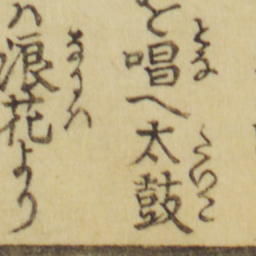 と唱へ太鼓
ハ浪花より